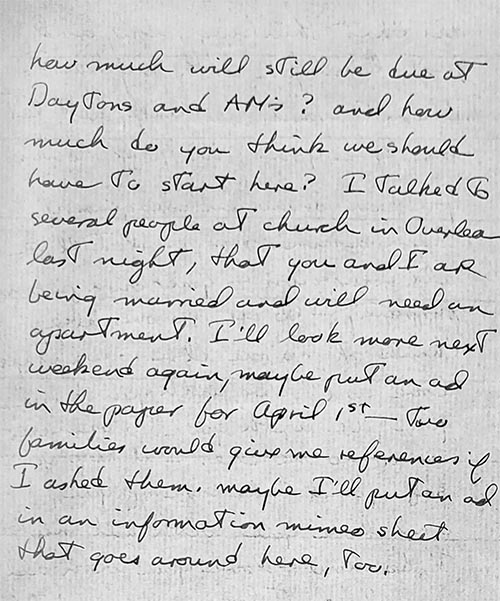 how much will still be due at
Daytons and AMs? and how
much do you think we should
have to start here? I talked to
several people at church in Overlea
last night, that you and I are
being married and will need an
apartment. I'll look more next
weekend again, maybe put an ad
in the paper for April 1st — Two
families would give me references if
I asked them. maybe I'll put an ad
in an information mimeo sheet
that goes around here, too.